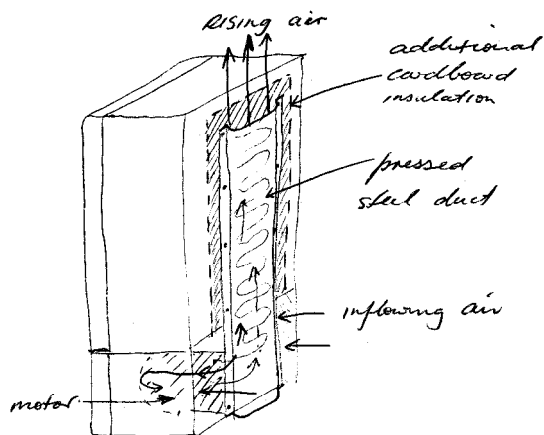 Rising air
additional
cardboard
insulation
pressed
steel duct
inflowing air
motor